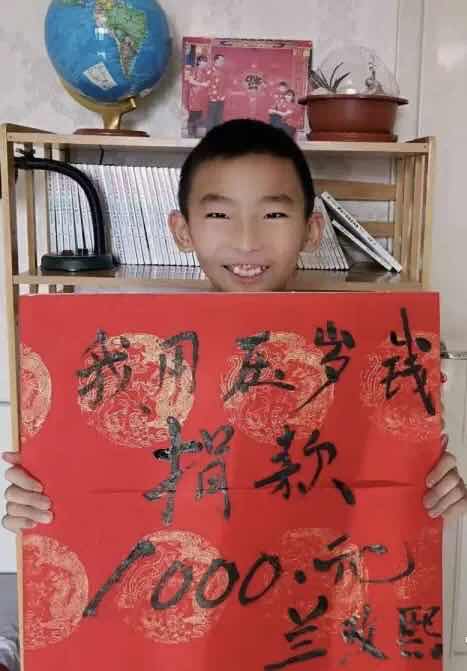 我用压岁钱
捐款
1000.元
兰玫熙